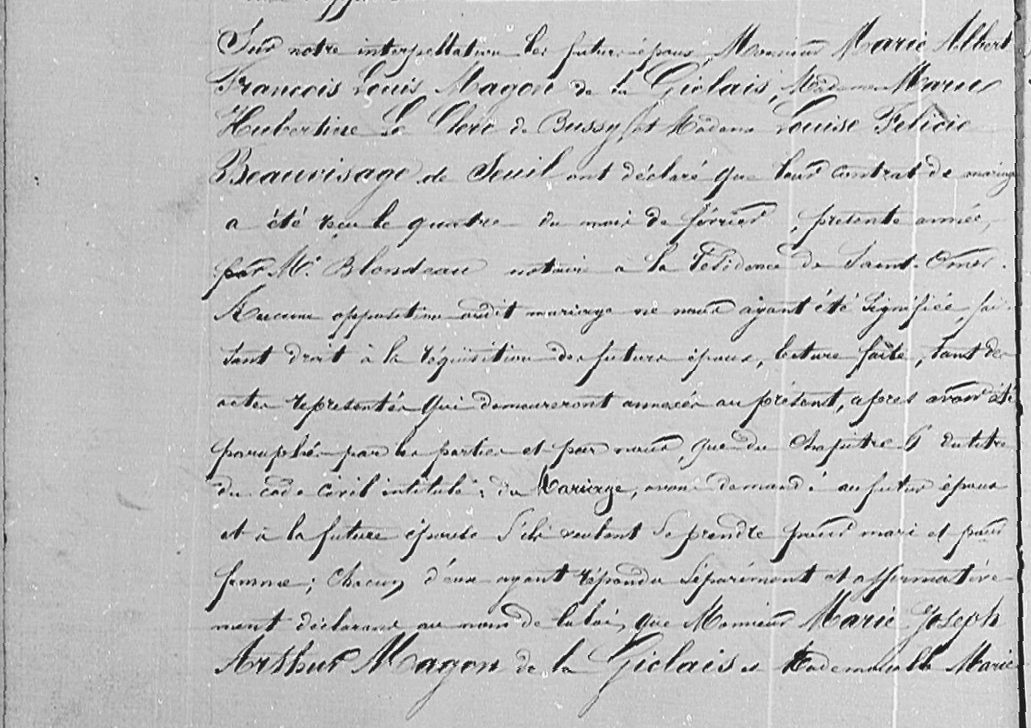 Sur notre interpellation les futurs époux, Monsieur Marie Albert
François Louis Magon de la Giclais, Madame Marie
Hubertine Le Clerc de Bussy, et Madame Louise Félicie
Beauvisage de Seuil ont déclaré que leur contrat de mariage
a été reçu le quatre du mois de février, présente année,
par Me. Blondeau notaire à la résidence de Saint-Omer.
Aucune opposition audit mariage ne nous ayant été signifiée, fai-
sant droit à la réquisition des futurs époux, lecture faite, tant des
actes représentés qui demeureront annexés au présent, après avoir été
paraphés par les parties et par nous, que du chapitre 6 du titre
du code civil intitulé: du Mariage, avons demandé au futur époux
et à la future épouse s'ils veulent se prendre pour mari et pour
femme; chacun d'eux ayant répondu séparément et affirmative-
ment déclarons au nom de la loi, que Monsieur Marie Joseph
Arthur Magon de la Giclais et Mademoiselle Marie